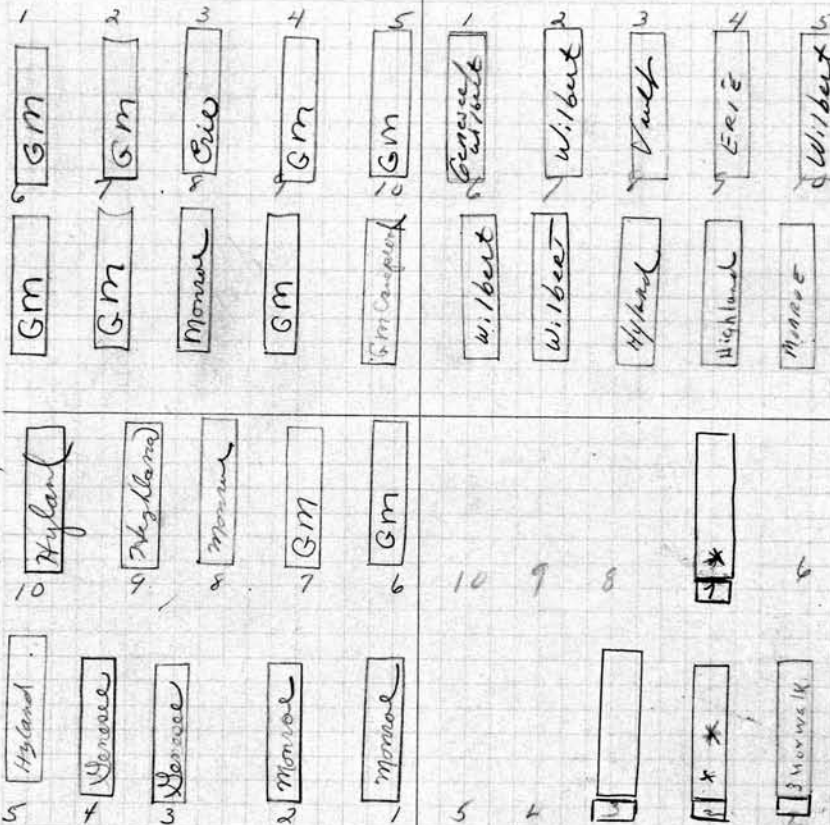 1 2 3 4 5
GM GM Erie GM GM
6 7 8 9 10
GM GM Monroe GM
1 2 3 4 5
Genesee Wilbert Wilbert Vault ERIE Wilbert
6 7 8 9 10
Wilbert Wilbert Hyland Highland MONROE
Hyland Highland Monroe GM GM
10 9 8 7 6
Hyland Genesee Genesee Monroe Monroe
5 4 3 2 1
*
10 9 8 7 6
* * Norwalk
5 4 3 2 1